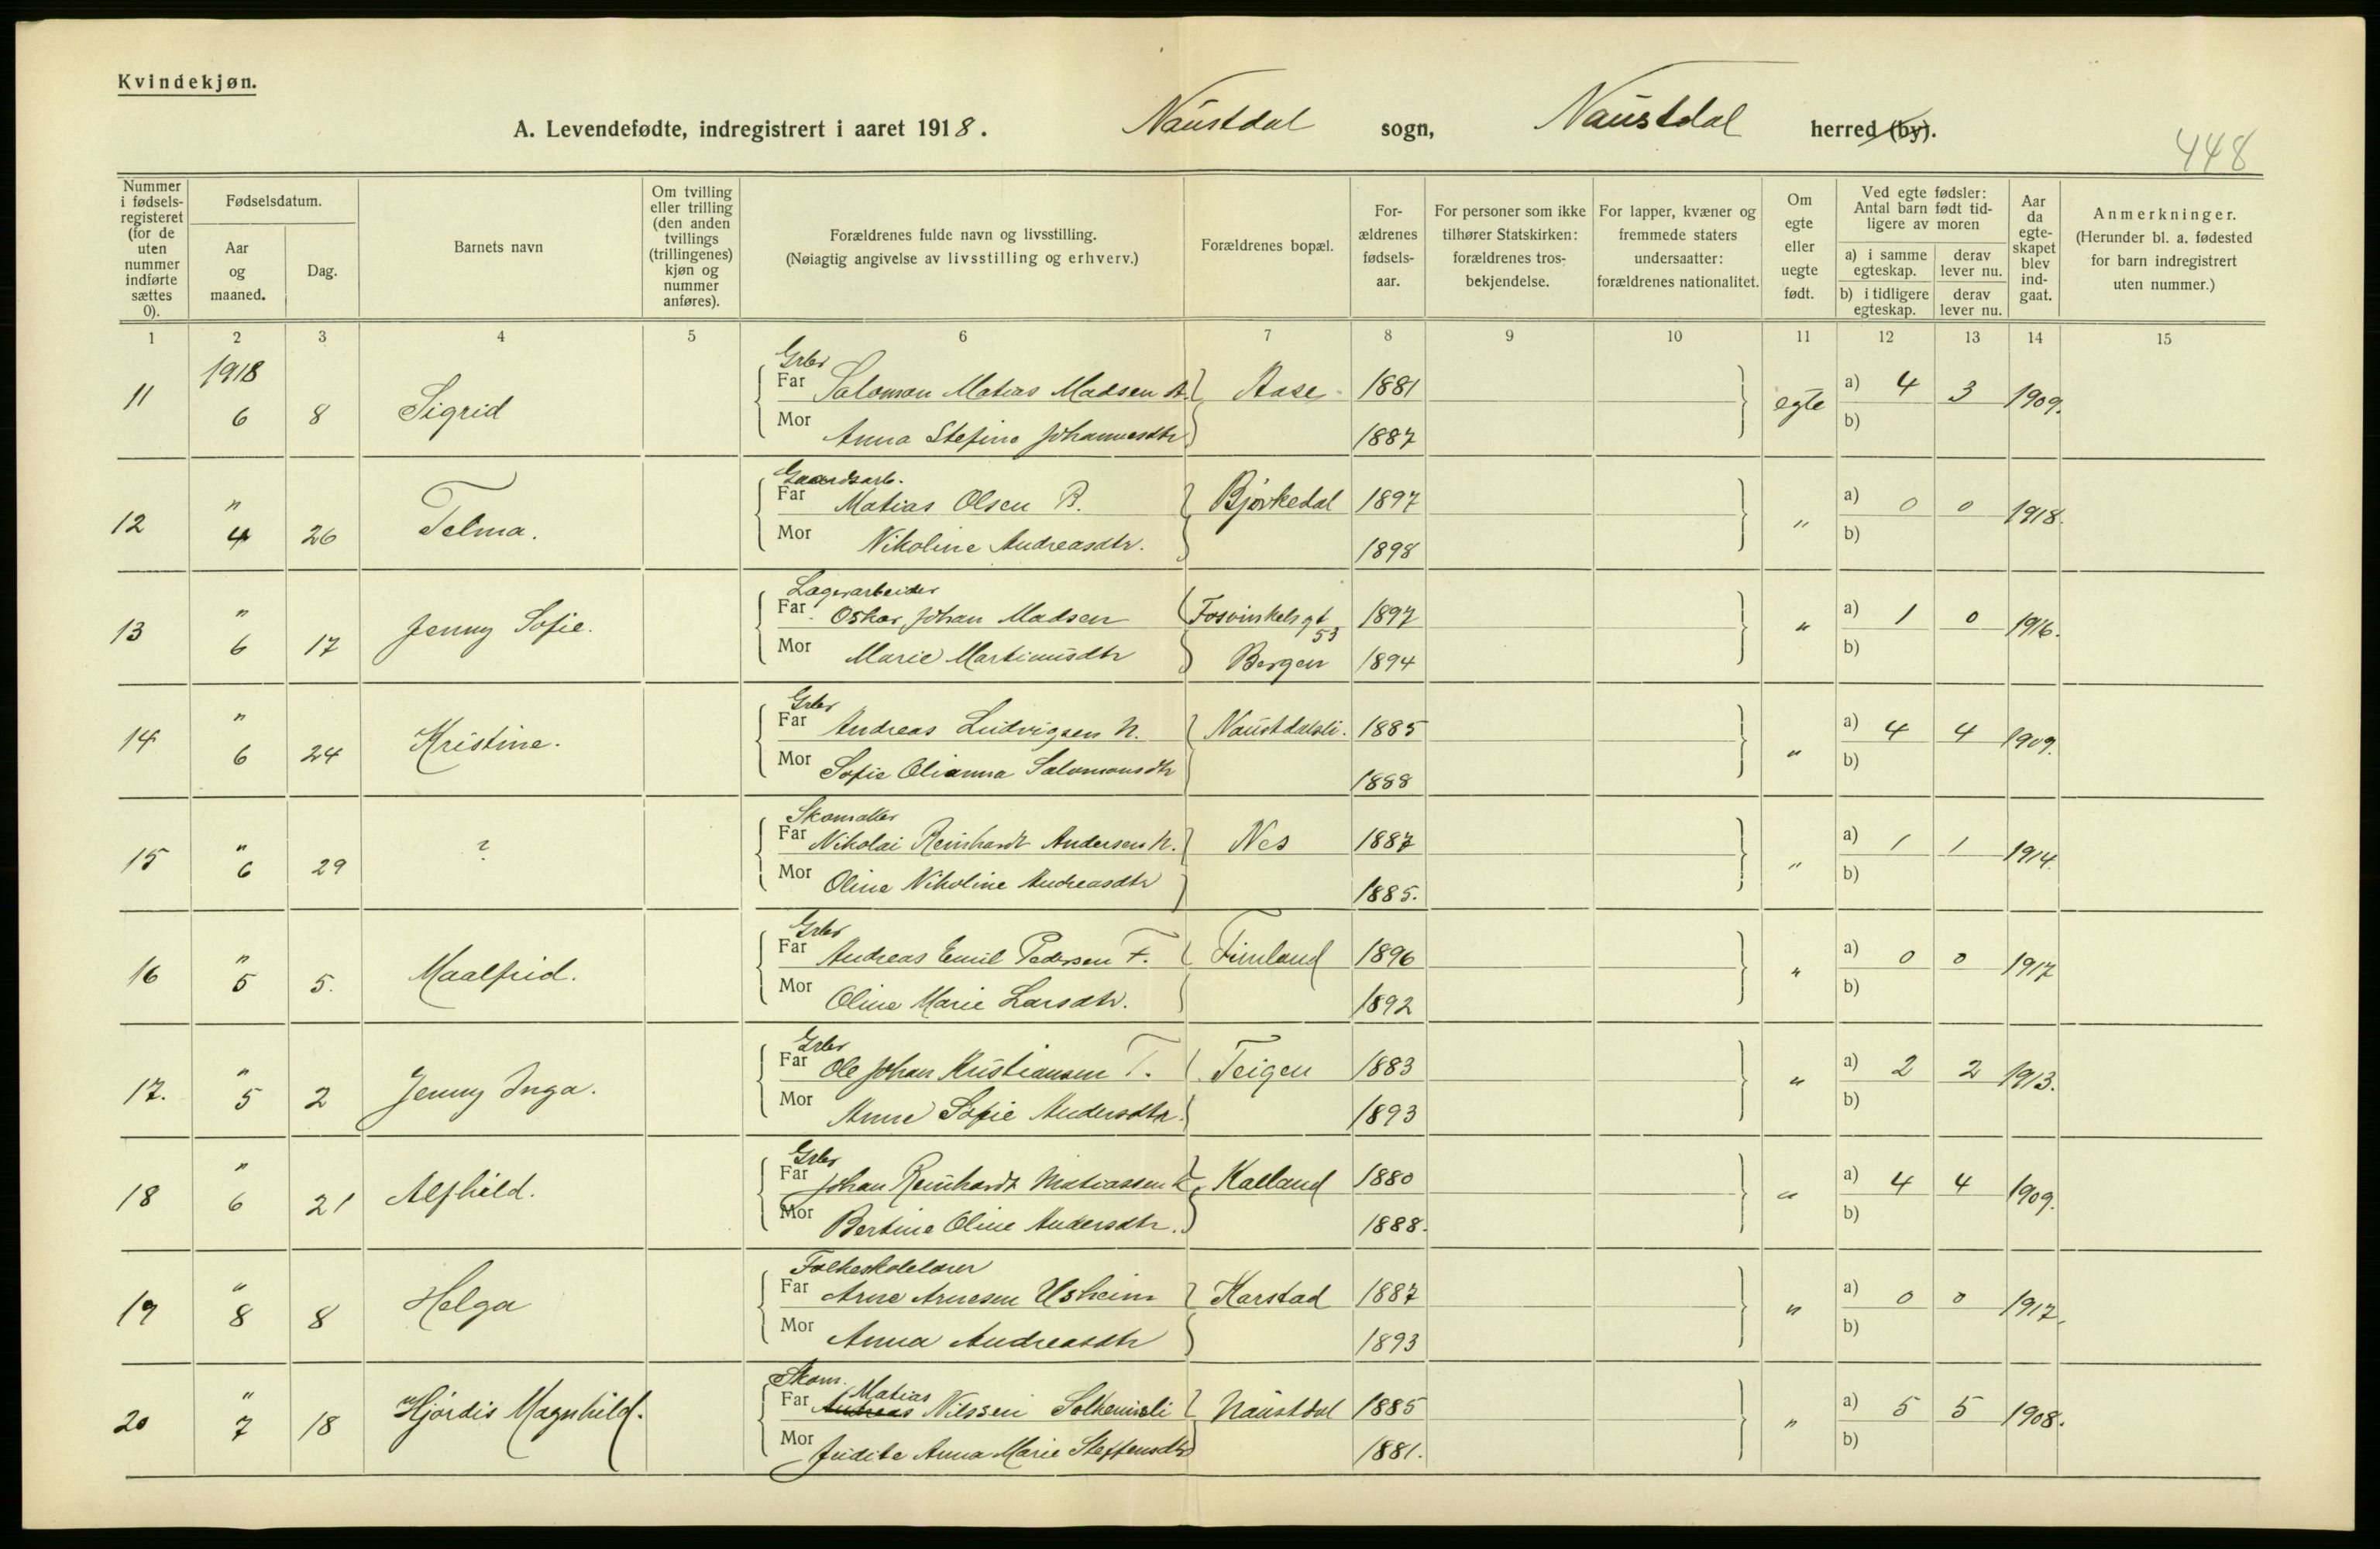 Kvindekjøn.
A. Levendefødte, indregistrert i aaret 1918. Naustdal sogn, Naustdal herred (by).
448
Nummer i fødselsregisteret (for de uten nummer indførte sættes 0).
Fødselsdatum.
Aar og maaned.
Dag.
Barnets navn
Om tvilling eller trilling (den anden tvillings (trillingenes) kjøn og nummer anføres).
Forældrenes fulde navn og livsstilling.
(Nøiagtig angivelse av livsstilling og erhverv.)
Forældrenes bopæl.
Forældrenes fødselsaar.
For personer som ikke tilhører Statskirken: forældrenes trosbekjendelse.
For lapper, kvæner og fremmede staters undersaatter: forældrenes nationalitet.
Om egte eller uegte født.
Ved egte fødsler: Antal barn født tidligere av moren
a) i samme egteskap.
derav lever nu.
b) i tidligere egteskap.
derav lever nu.
Aar da egteskapet blev indgaat.
Anmerkninger.
(Herunder bl. a. fødested for barn indregistrert uten nummer.)
1 2 3 4 5 6 7 8 9 10 11 12 13 14 15
1918
Grbr
11 6 8 Sigrid Far Salomon Matias Madsen A. Aase 1881 egte a) 4 3 1909.
Mor Anna Stefine Johannesdtr 1887 b)
Gaardsarb.
12 " 4 26 Telma. Far Matias Olsen B. Bjørkedal 1897 " a) 0 0 1918.
Mor Nikoline Andreasdtr. 1898 b)
Lagerarbeider
13 " 6 17 Jenny Sofie. Far Oskar Johan Madsen Fosvinkelsgt 53 1897 " a) 1 0 1916.
Mor Marie Martinusdtr Bergen 1894 b)
Grbr
14 " 6 24 Kristine. Far Andreas Ludvigsen N. Naustdalsli. 1885 " a) 4 4 1909.
Mor Sofie Olianna Salomonsdtr 1888 b)
Skomaker
15 " 6 29 ? Far Nikolai Reinhardt Andersen N. Nes 1887 " a) 1 1 1914.
Mor Oline Nikoline Andreasdtr 1885. b)
Grbr
16 " 5 5. Maalfrid. Far Andreas Emil Pedersen F. Fimland 1896 " a) 0 0 1917
Mor Oline Marie Larsdtr. 1892 b)
Grbr
17. " 5 2 Jenny Inga. Far Ole Johan Kristiansen T. Teigen 1883 " a) 2 2 1913.
Mor Anne Sofie Andersdtr. 1893 b)
Grbr
18 " 6 21 Alfhild. Far Johan Reinhardt Matiassen K. Kalland 1880 " a) 4 4 1909.
Mor Bertine Oline Andersdtr. 1888. b)
Folkeskolelærer
19 " 8 8 Helga Far Arne Arnesen Usheim Karstad 1887 " a) 0 0 1917.
Mor Anna Andreasdtr 1893 b)
Skom. Matias
20 " 7 18 Hjørdis Magnhild. Far Andreas Nilssen Solheimsli Naustdal 1885 " a) 5 5 1908.
Mor Judite Anna Marie Steffensdtr 1881. b)